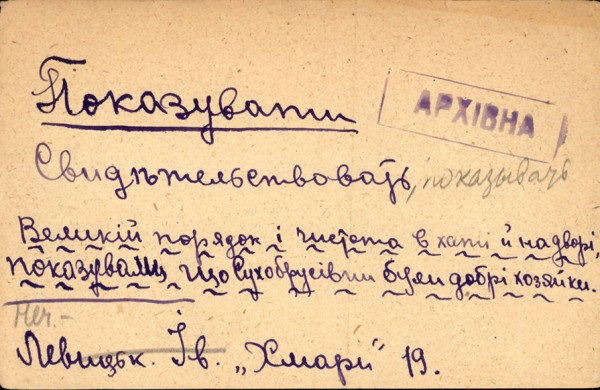 Показувати
АРХІВНА
Свидѣтельствовать, показывать
Великій порядок і чистота в хаті й надворі,
показували, що Сухобрусівни були добрі хозяйки.
Неч.-
Левицьк. Ів. „Хмари" 19.